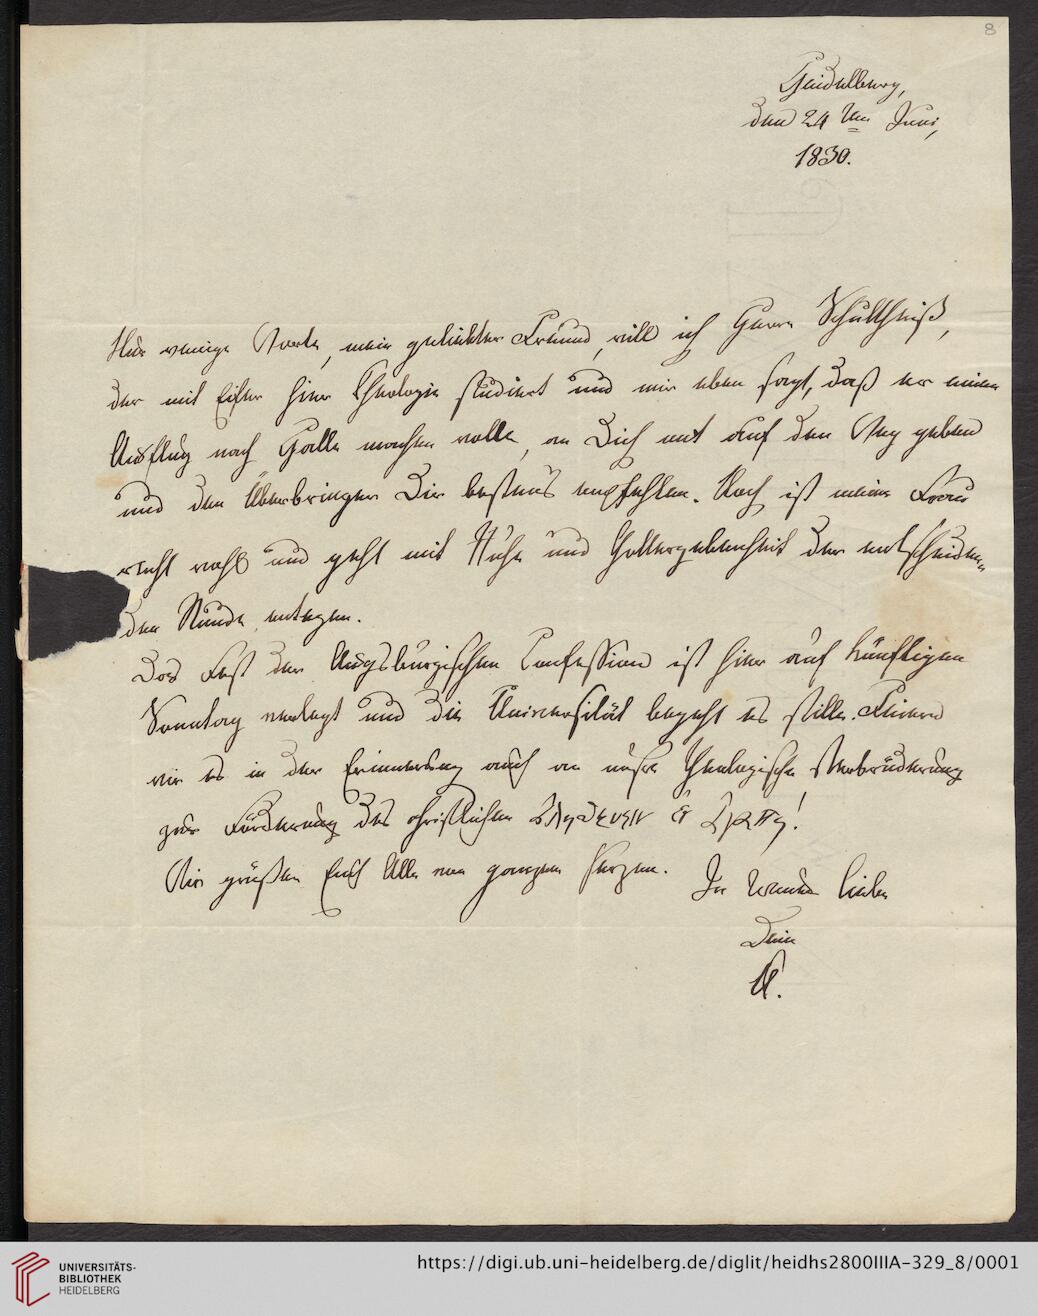 8
Heidelberg,
den 24ten Juni,
1830.
Nur wenige Worte, mein geliebter Freund, will ich Herrn Schultheiß,
der mit Eifer hier Theologie studiert und mir eben sagt, daß er einen
Ausflug nach Halle machen wolle, an Dich mit auf den Weg geben
und den Überbringer Dir bestens empfehlen. Noch ist meine Frau
recht wohl und geht mit Ruhe und Gottergebenheit der entscheiden-
den Stunde entgegen.
Das Fest der Augsburgischen Confession ist hier auf künftigen
Sonntag verlegt und die Universität begeht es stille. Feiern
wir es in der Erinnerung auch an unsre theologische Verbrüderung
zur Förderung des christlichen ἀληθεύειν ἐν ἀγάπῃ!
Wir grüßen Euch Alle von ganzem Herzen. In Liebe
Dein
U.
UNIVERSITÄTS-
BIBLIOTHEK
HEIDELBERG
https://digi.ub.uni-heidelberg.de/diglit/heidhs2800IIIA-329_8/0001